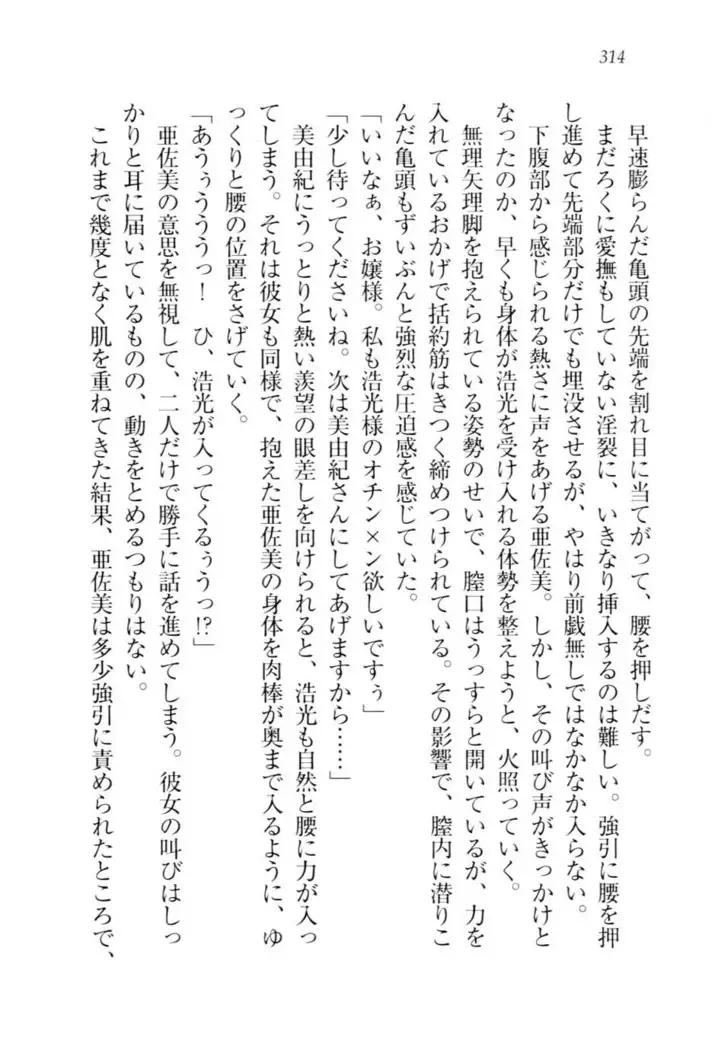 314
早速膨らんだ亀頭の先端を割れ目に当てがって、腰を押しだす。
まだろくに愛撫もしていない淫裂に、いきなり挿入するのは難しい。強引に腰を押
し進めて先端部分だけでも埋没させるが、やはり前戯無しではなかなか入らない。
下腹部から感じられる熱さに声をあげる亜佐美。しかし、その叫び声がきっかけと
なったのか、早くも身体が浩光を受け入れる体勢を整えようと、火照っていく。
無理矢理脚を抱えられている姿勢のせいで、膣口はうっすらと開いているが、力を
入れているおかげで括約筋はきつく締めつけられている。その影響で、膣内に潜りこ
んだ亀頭もずいぶんと強烈な圧迫感を感じていた。
「いいなぁ、お嬢様。私も浩光様のオチン×ン欲しいですぅ」
「少し待ってくださいね。次は美由紀さんにしてあげますから……」
美由紀にうっとりと熱い羨望の眼差しを向けられると、浩光も自然と腰に力が入っ
てしまう。それは彼女も同様で、抱えた亜佐美の身体を肉棒が奥まで入るように、ゆ
っくりと腰の位置をさげていく。
「あうぅううっ！　ひ、浩光が入ってくるぅうっ!?」
亜佐美の意思を無視して、二人だけで勝手に話を進めてしまう。彼女の叫びはしっ
かりと耳に届いているものの、動きをとめるつもりはない。
これまで幾度となく肌を重ねてきた結果、亜佐美は多少強引に責められたところで、